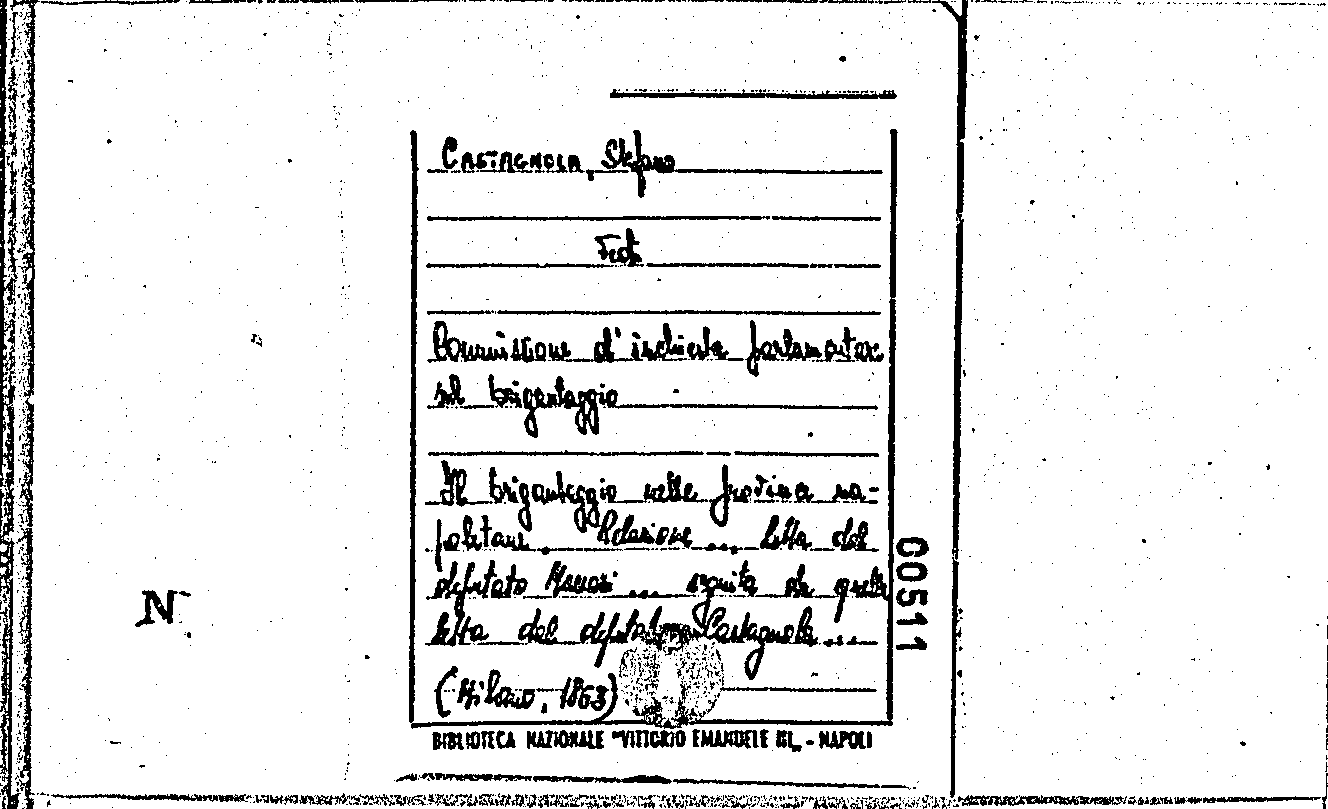 CASTAGNOLA, Stefano
Commissione d'inchiesta parlamentare
sul brigantaggio
Il brigantaggio nelle province na-
poletane. Relazione ... letta dal
deputato Massari ... seguita da quella
letta dal deputato Castagnola ...
(Milano, 1863)
BIBLIOTECA NAZIONALE "VITTORIO EMANUELE III„ - NAPOLI
00511
N